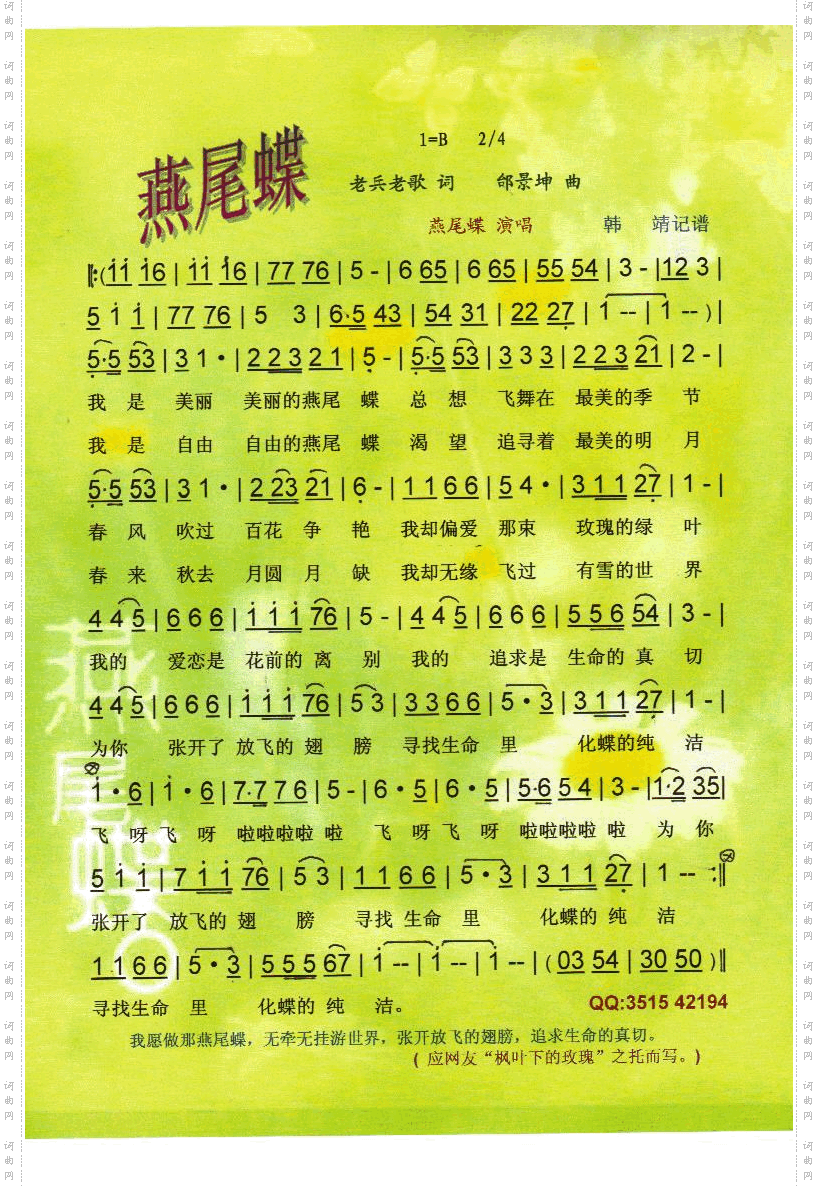 1=B 2/4
燕尾蝶
老兵老歌 词 邰景坤 曲
燕尾蝶 演唱 韩 靖记谱
‖:(i̇i̇ i̇6 | i̇i̇ i̇6 | 77 76 | 5 - | 6 65 | 6 65 | 55 54 | 3 - | 12 3 |
5 i̇ i̇ | 77 76 | 5 3 | 6·5 43 | 54 31 | 22 27 | 1 -- | 1 -- ) |
5·5 53 | 3 1 · | 2 2 3 2 1 | 5 - | 5·5 53 | 3 3 3 | 2 2 3 21 | 2 - |
我 是 美丽 美丽的燕尾 蝶 总 想 飞舞在 最美的季 节
我 是 自由 自由的燕尾 蝶 渴 望 追寻着 最美的明 月
5·5 53 | 3 1 · | 2 23 21 | 6 - | 1 1 6 6 | 5 4 · | 3 1 1 27 | 1 - |
春 风 吹过 百花 争 艳 我却偏爱 那束 玫瑰的绿 叶
春 来 秋去 月圆 月 缺 我却无缘 飞过 有雪的世 界
4 4 5 | 6 6 6 | i̇ i̇ i̇ 76 | 5 - | 4 4 5 | 6 6 6 | 5 5 6 54 | 3 - |
我的 爱恋是 花前的 离 别 我的 追求是 生命的 真 切
4 4 5 | 6 6 6 | i̇ i̇ i̇ 76 | 5 3 | 3 3 6 6 | 5 · 3 | 3 1 1 27 | 1 - |
为你 张开了 放飞的 翅 膀 寻找生命 里 化蝶的纯 洁
i̇ · 6 | i̇ · 6 | 7·7 7 6 | 5 - | 6 · 5 | 6 · 5 | 5·6 5 4 | 3 - | 1·2 35 |
飞 呀 飞 呀 啦啦啦啦 啦 飞 呀 飞 呀 啦啦啦啦 啦 为 你
5 i̇ i̇ | 7 i̇ i̇ 76 | 5 3 | 1 1 6 6 | 5 · 3 | 3 1 1 27 | 1 -- :‖
张开了 放飞的 翅 膀 寻找 生命 里 化蝶的 纯 洁
1 1 6 6 | 5 · 3 | 5 5 5 67 | i̇ -- | i̇ -- | i̇ -- | ( 03 54 | 30 50 )‖
寻找生命 里 化蝶的 纯 洁。
QQ:3515 42194
我愿做那燕尾蝶，无牵无挂游世界，张开放飞的翅膀，追求生命的真切。
( 应网友“枫叶下的玫瑰”之托而写。)
燕尾蝶。
词曲网